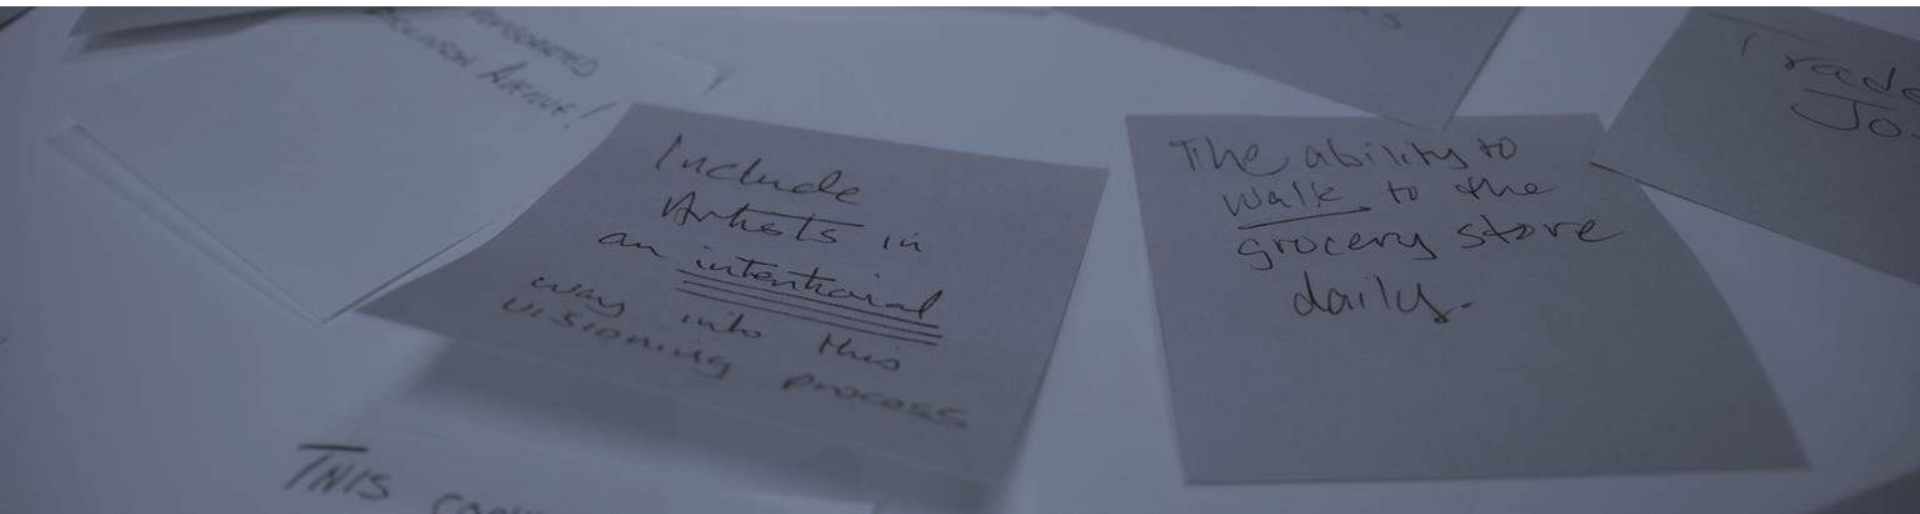 Avenue!
Include
Artists in
an intentional
way into this
visioning process
The ability to
walk to the
grocery store
daily.
Trade
Jo
THIS